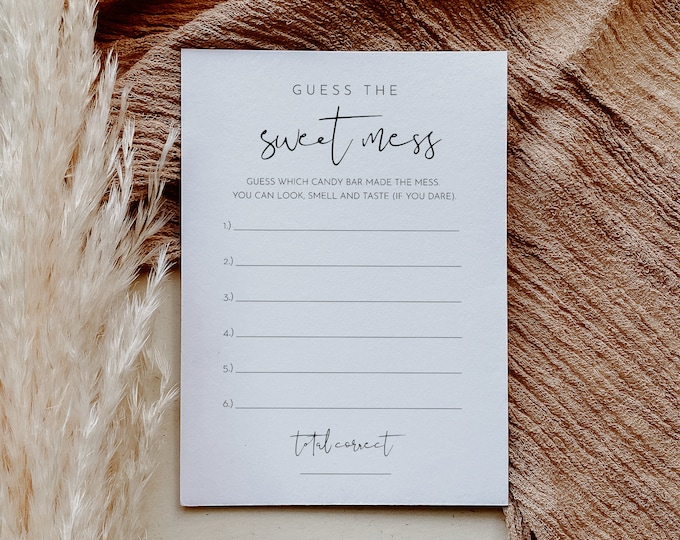 GUESS THE
sweet mess
GUESS WHICH CANDY BAR MADE THE MESS.
YOU CAN LOOK, SMELL AND TASTE (IF YOU DARE).
1.)
2.)
3.)
4.)
5.)
6.)
total correct